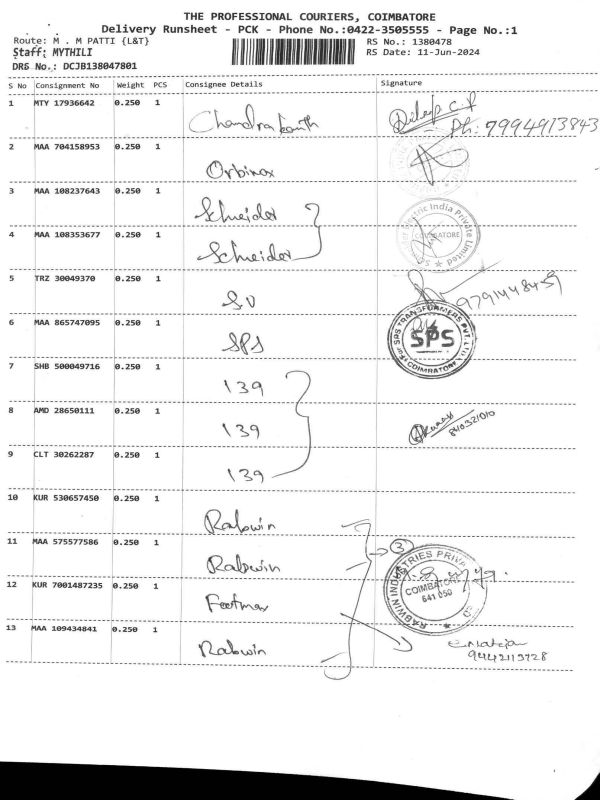 THE PROFESSIONAL COURIERS, COIMBATORE
Delivery Runsheet - PCK - Phone No.:0422-3505555 - Page No.:1
Route: M . M PATTI {L&T}
RS No.: 1380478
Staff: MYTHILI
RS Date: 11-Jun-2024
DRS No.: DCJB138047801
S No Consignment No Weight PCS Consignee Details Signature
1 MTY 17936642 0.250 1 Chandrakanth Dileep C.P
Ph: 7994913843
2 MAA 704158953 0.250 1 Orbinox
3 MAA 108237643 0.250 1 Schneider
Electric India Private Limited
COIMBATORE
4 MAA 108353677 0.250 1 Schneider
5 TRZ 30049370 0.250 1 SV 9791448459
6 MAA 865747095 0.250 1 SPS
For SPS TRANSFORMERS PVT. LTD.
SPS
COIMBATORE
7 SHB 500049716 0.250 1 139
8 AMD 28650111 0.250 1 139
9 CLT 30262287 0.250 1 139
10 KUR 530657450 0.250 1 Rabwin
11 MAA 575577586 0.250 1 Rabwin 3
RABWIN INDUSTRIES PRIVA
COIMBATORE
641 050
12 KUR 7001487235 0.250 1 Feetmax
13 MAA 109434841 0.250 1 Rabwin
9442113728